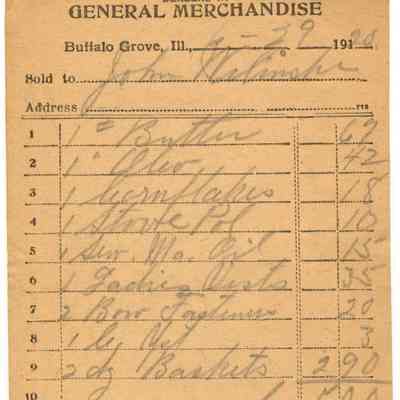 GENERAL MERCHANDISE
Buffalo Grove, Ill., 29 1920
Sold to John
Address
1 1 # Butter 67
2 1 " Oleo 42
3 1 Cornflakes 18
4 1 Stove Pol 10
5 1 Sew. Ma. Oil 15
6 1 Ladies Vests 35
7 2 Bow Fasteners 20
8 1 3
9 2 dz Baskets 290
10